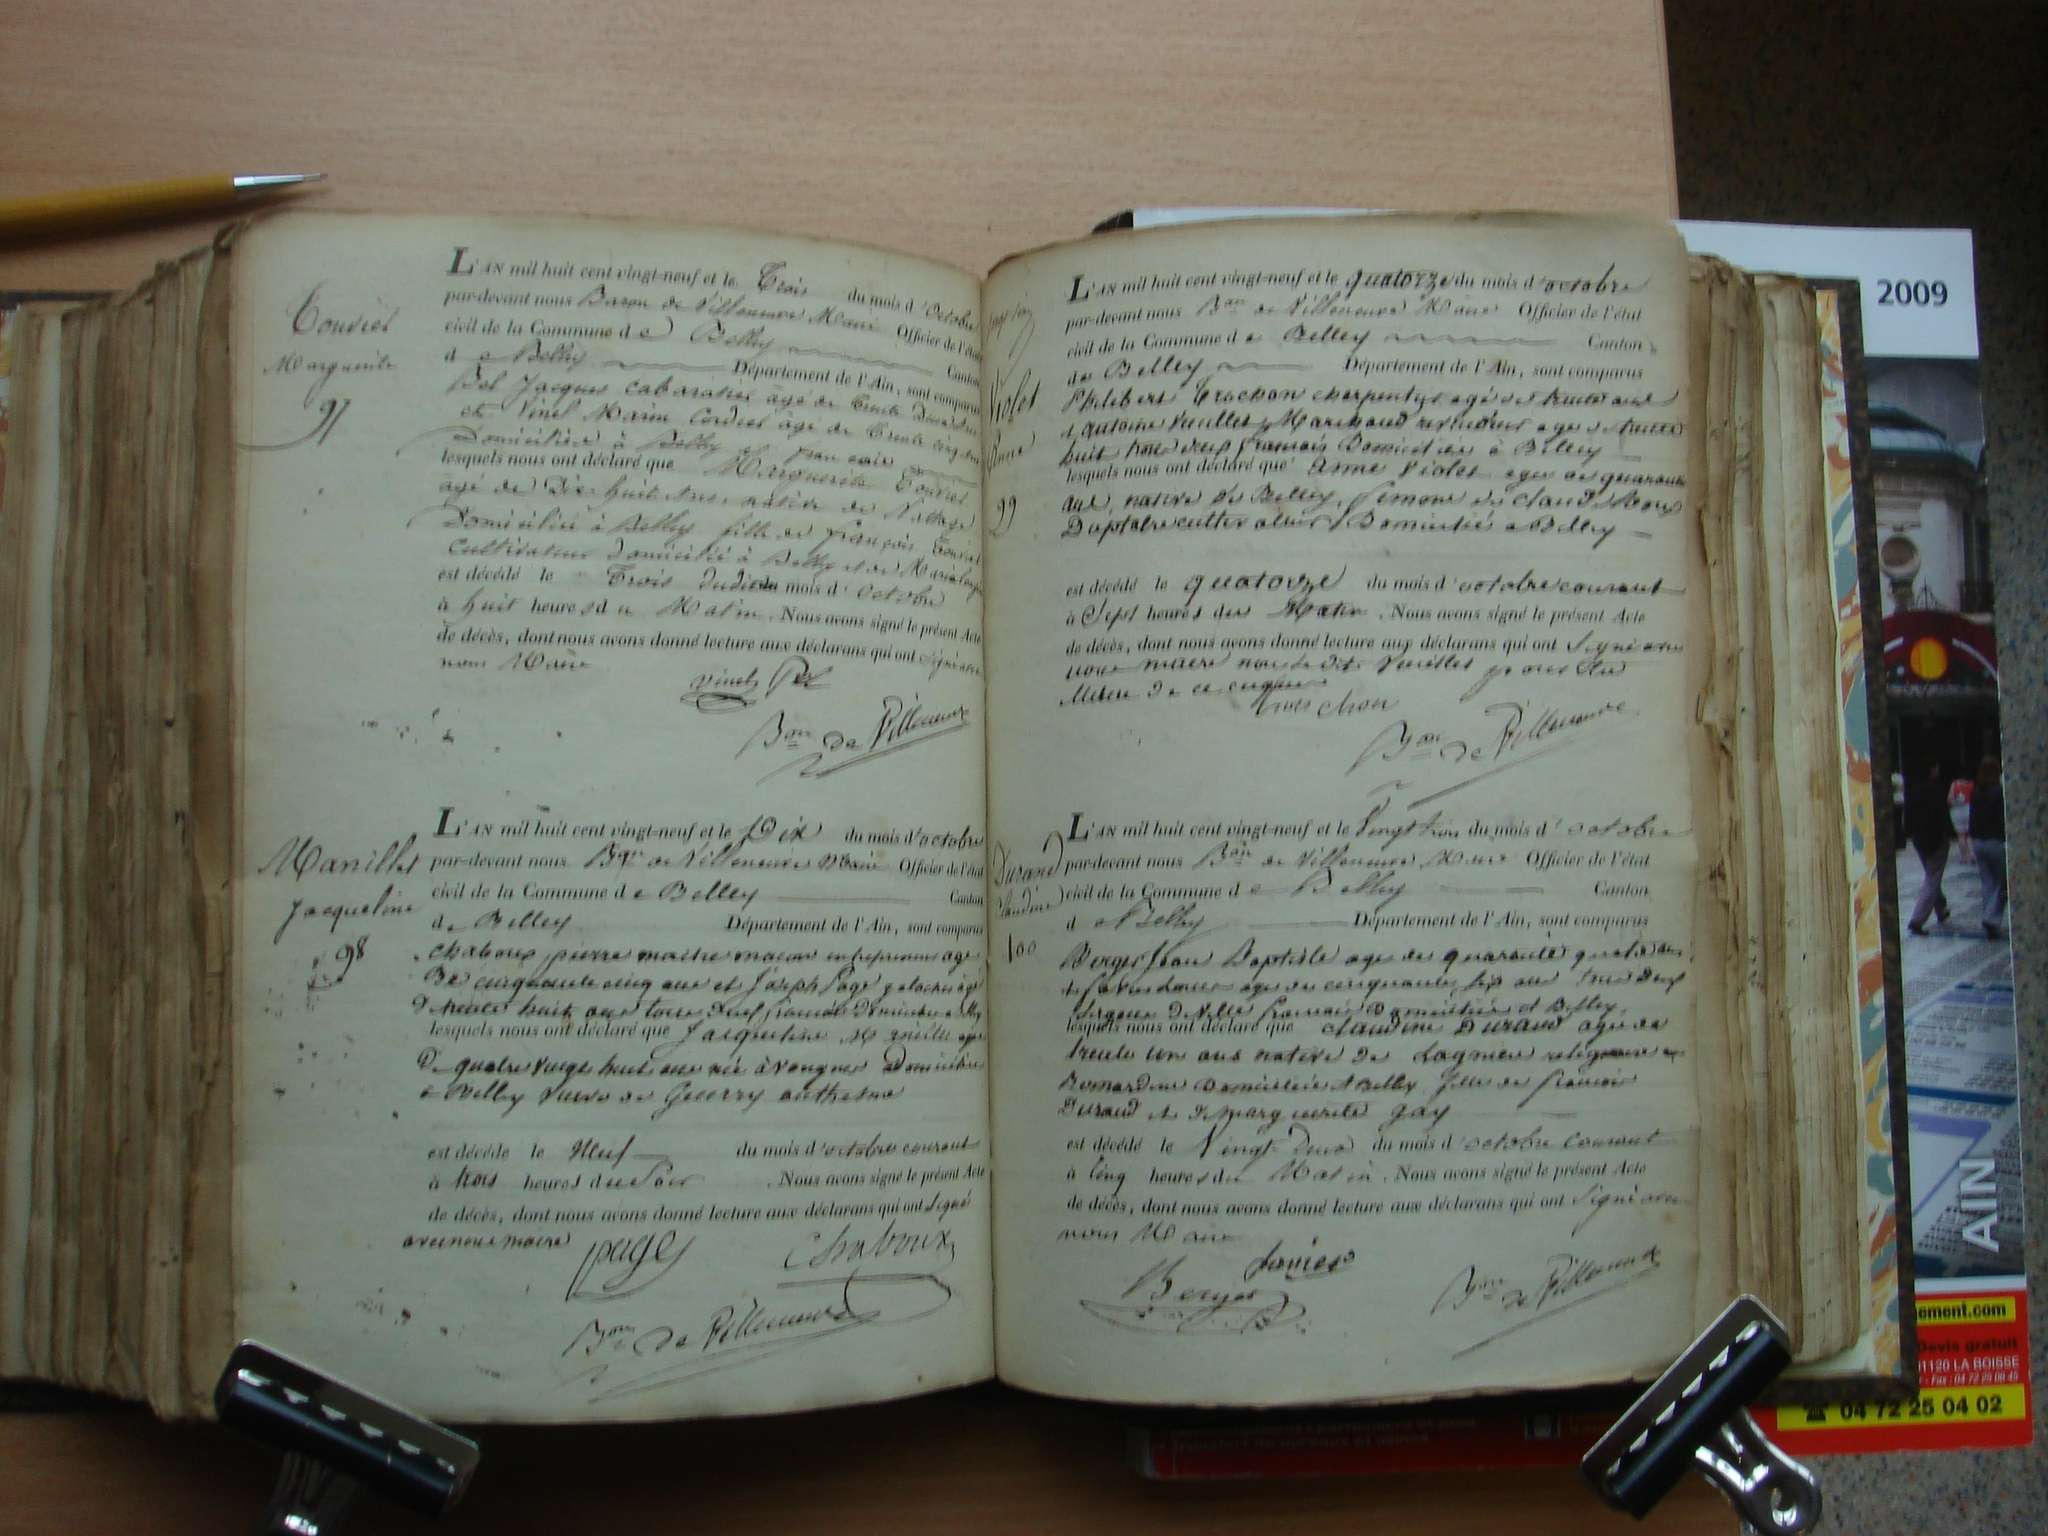 Touvier
Marguerite
97
L'AN mil huit cent vingt-neuf et le Trois du mois d'Octobre
par-devant nous Baron de Villeneuve Maire Officier de l'état
civil de la Commune de Belley Canton
de Belley Département de l'Ain, sont comparus
Jacques cabaretier âgé de Trente Deux ans
et Vinel cordier âgé de Trente cinq ans
Domiciliés à Belley
lesquels nous ont déclaré que Marguerite Touvier
agé de Dix huit ans, native de
Domiciliée à Belley fille de françois Touvier
cultivateur domicilié à Belley et de
est décédé le Trois dudit mois d'octobre
à huit heures du Matin. Nous avons signé le présent Acte
de décès, dont nous avons donné lecture aux déclarans qui ont signé avec
nous Maire
Vinel
Bon de Villeneuve
Manillet
Jacqueline
98
L'AN mil huit cent vingt-neuf et le Dix du mois d'octobre
par-devant nous Bon de Villeneuve Maire Officier de l'état
civil de la Commune de Belley Canton
de Belley Département de l'Ain, sont comparus
Chaboux pierre maitre macon age
De cinquante cinq ans et Joseph Page age
De trente huit ans tous deux francais Domicilies a Belley
lesquels nous ont déclaré que Jacqueline Manillet age
De quatre vingt huit ans née à Domiciliee
a Belley Veuve de Guerry anthelme
est décédé le Neuf du mois d'octobre courant
à trois heures du Soir. Nous avons signé le présent Acte
de décès, dont nous avons donné lecture aux déclarans qui ont Signé
avec nous maire
page Chaboux
Bon de Villeneuve
Violet
Anne
99
L'AN mil huit cent vingt-neuf et le quatorze du mois d'octobre
par-devant nous Bon de Villeneuve Maire Officier de l'état
civil de la Commune de Belley Canton
de Belley Département de l'Ain, sont comparus
Philibert Trochon charpentier age de trente
et antoine Vieillet age de trente
huit tous deux francais Domiciliés a Belley
lesquels nous ont déclaré que anne Violet agee de quarante
native de Belley, femme de Claude
cultivateur Domicilié a Belley
est décédé le quatorze du mois d'octobre courant
à Sept heures du Matin. Nous avons signé le présent Acte
de décès, dont nous avons donné lecture aux déclarans qui ont Signé avec
nous maire non le dit Vieillet pour etre
de ce enquis
Trochon
Bon de Villeneuve
Durand
Claudine
100
L'AN mil huit cent vingt-neuf et le Vingt trois du mois d'octobre
par-devant nous Bon de Villeneuve Maire Officier de l'état
civil de la Commune de Belley Canton
de Belley Département de l'Ain, sont comparus
Berger Jean Baptiste age de quarante quatre ans
et age de cinquante six ans tous Deux
Sergens de Ville francais Domiciliés a Belley
lesquels nous ont déclaré que Claudine Durand agee de
trente un ans native de Lagnieu religieuse
Bernardine Domiciliée a Belley fille de francois
Durand et de marguerite gay
est décédé le Vingt Deux du mois d'octobre courant
à Cinq heures du Matin. Nous avons signé le présent Acte
de décès, dont nous avons donné lecture aux déclarans qui ont Signé avec
nous Maire
Berger
Bon de Villeneuve
2009
AIN
ement.com
Devis gratuit
01120 LA BOISSE
04 72 25 04 02